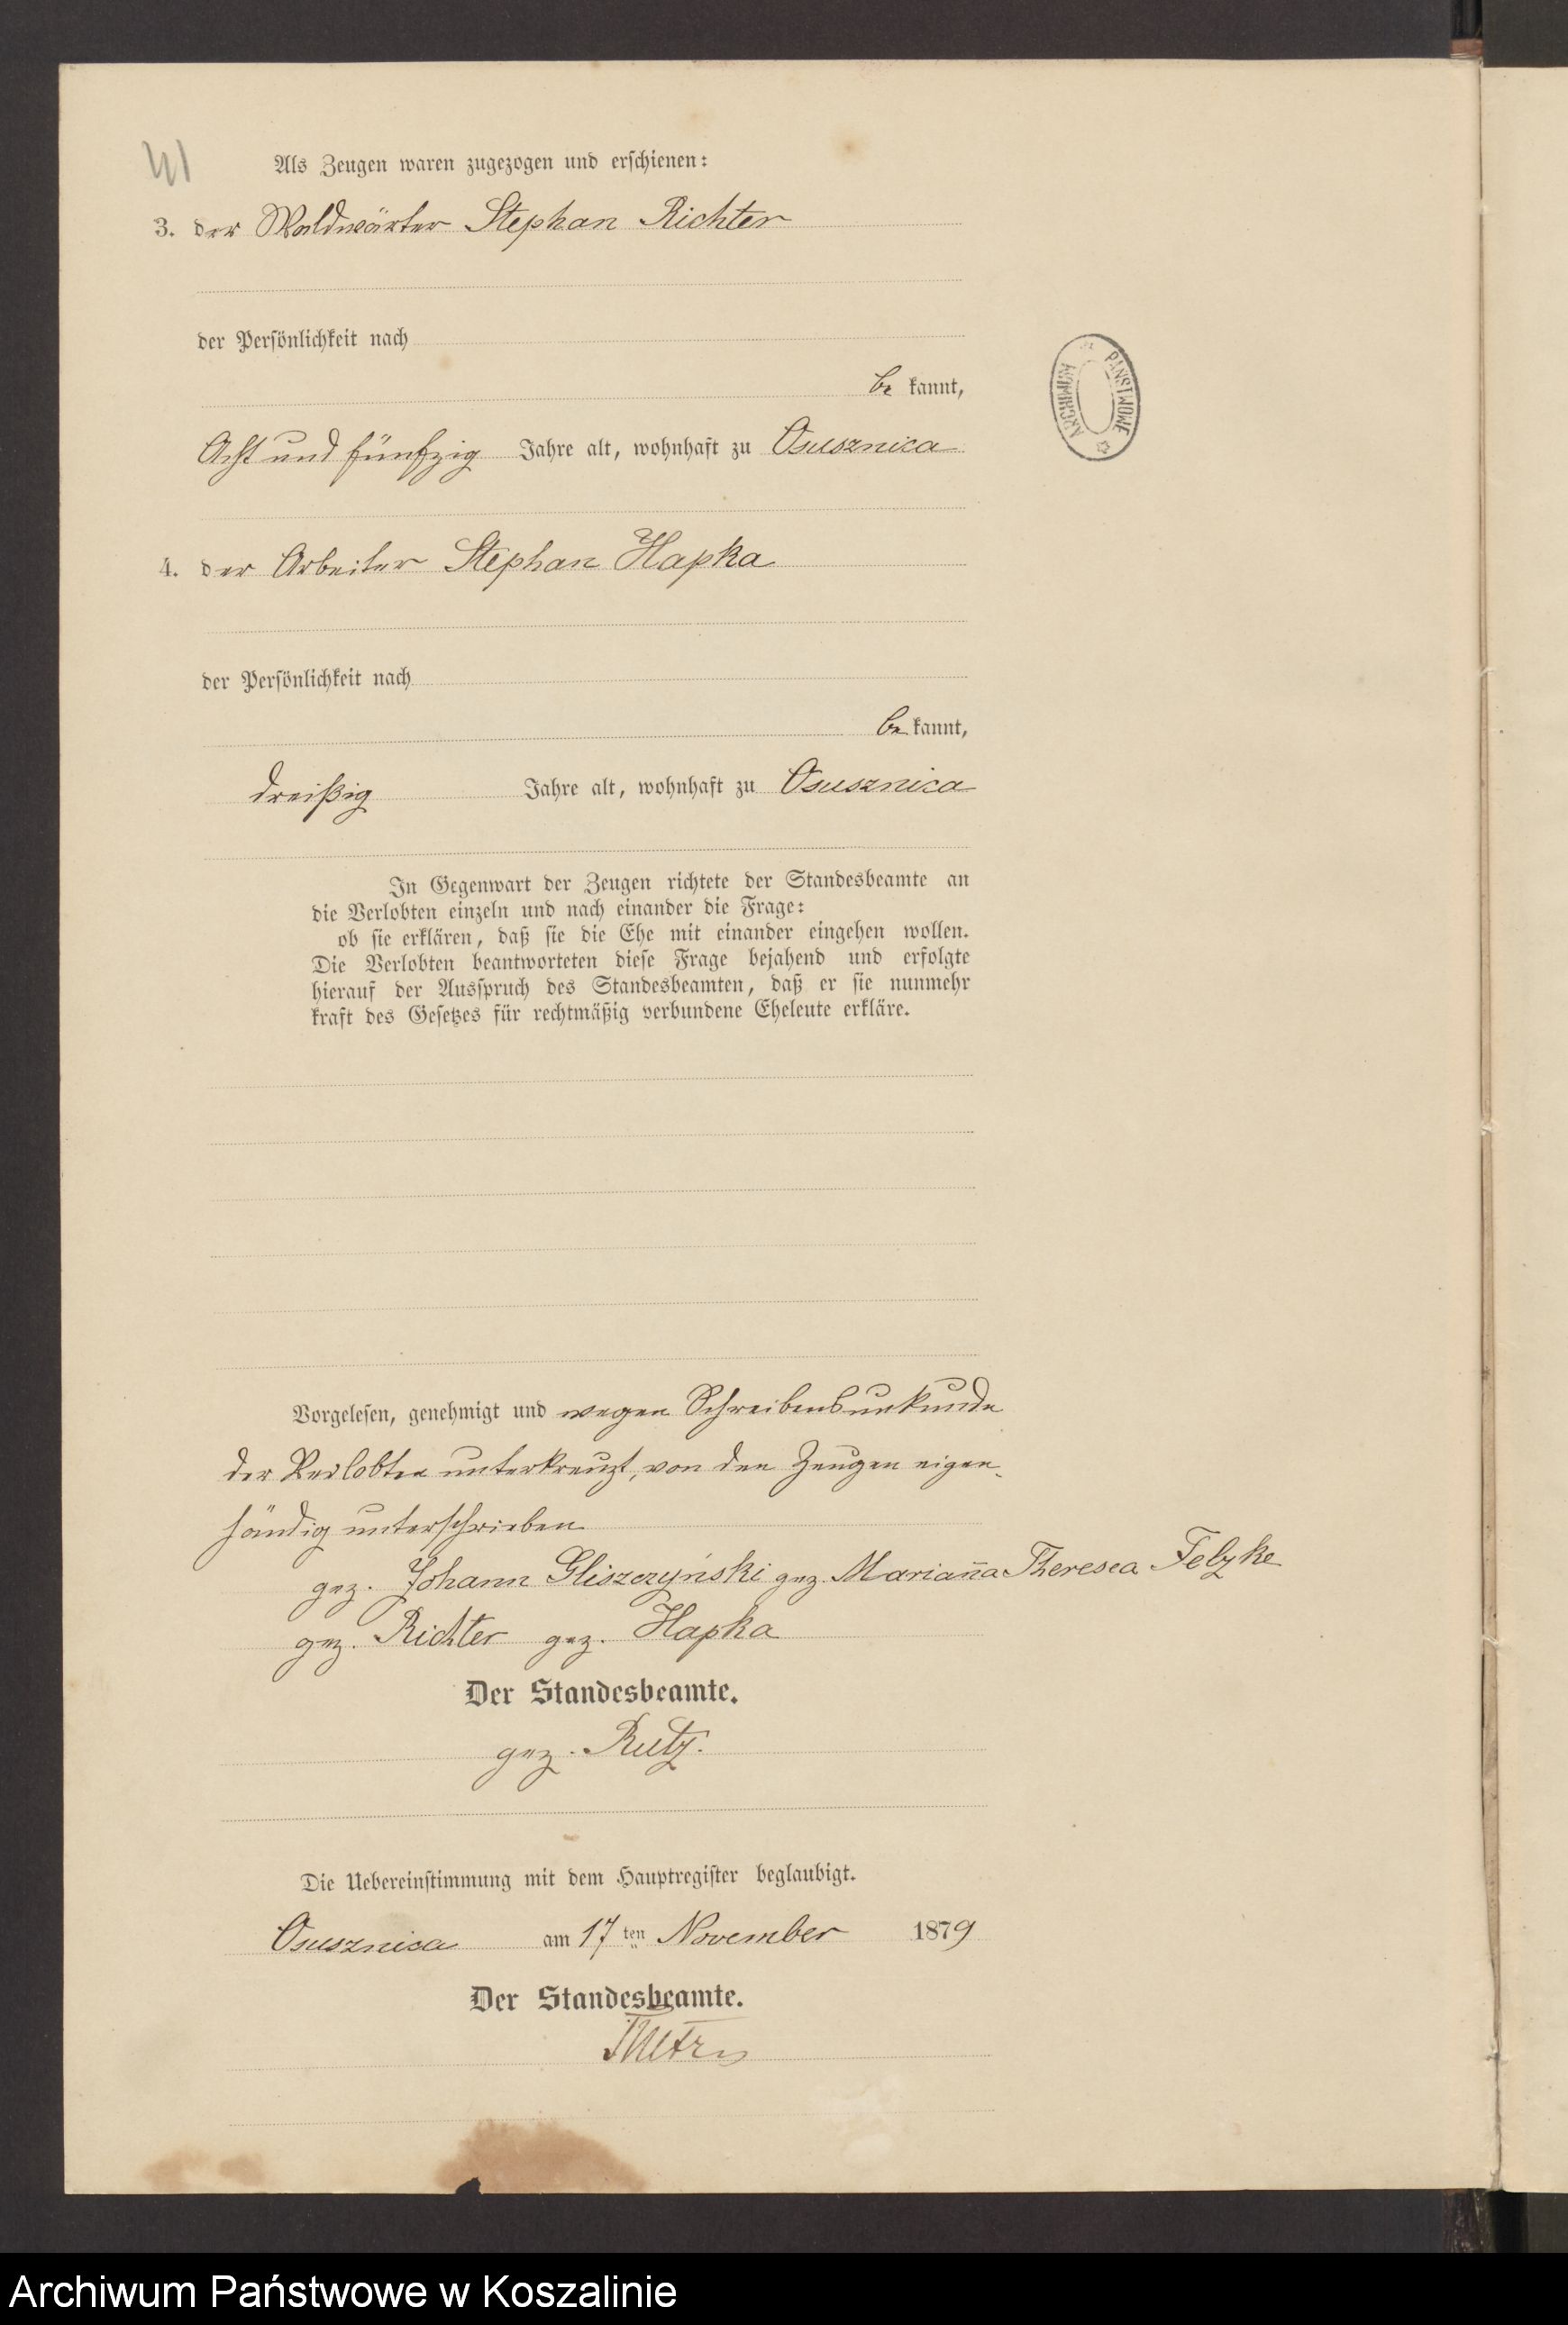 41
Als Zeugen waren zugezogen und erschienen:
3. der Waldwärter Stephan Richter
der Persönlichkeit nach
be kannt,
Acht und fünfzig Jahre alt, wohnhaft zu Osusznica
4. der Arbeiter Stephan Hapka
der Persönlichkeit nach
be kannt,
dreißig Jahre alt, wohnhaft zu Osusznica
In Gegenwart der Zeugen richtete der Standesbeamte an
die Verlobten einzeln und nach einander die Frage:
ob sie erklären, daß sie die Ehe mit einander eingehen wollen.
Die Verlobten beantworteten diese Frage bejahend und erfolgte
hierauf der Ausspruch des Standesbeamten, daß er sie nunmehr
kraft des Gesetzes für rechtmäßig verbundene Eheleute erkläre.
Vorgelesen, genehmigt und wegen Schreibensunkunde
der Verlobten unterkreuzt, von den Zeugen eigen-
händig unterschrieben
gez. Johann Gliszczyński gez. Marian̄a Theresea Felzke
gez. Richter gez. Hapka
Der Standesbeamte.
gez. Rutz.
Die Uebereinstimmung mit dem Hauptregister beglaubigt.
Osusznica am 17ten November 1879
Der Standesbeamte.
ARCHIWUM PAŃSTWOWE
Archiwum Państwowe w Koszalinie